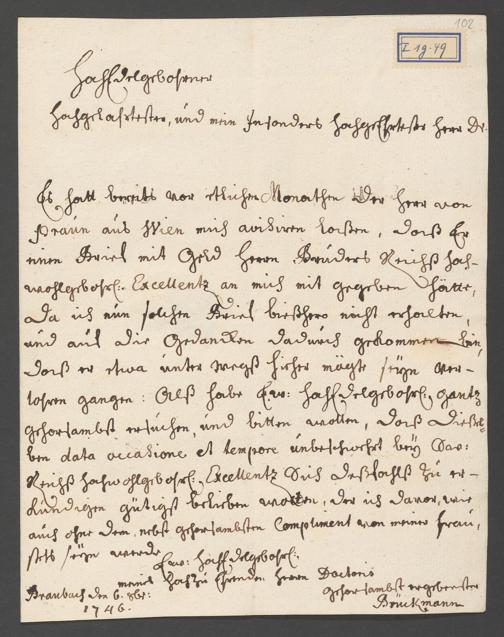 102
I 19.49
HochEdelgebohrner
Hochgelahrtester, und mein Insonders Hochgeehrtester Herr Dr.
Es hatt bereits vor etlichen Monathen Der Herr von
Praun aus Wien mich avisiren laßen, daß Er
einen Brief mit Geld Herrn Bruders Reichß Hoch-
wohlgebohrl. Excellentz an mich mit gegeben hätte,
Da ich nun solchen Brief bießhero nicht erhalten,
und auf die Gedancken dadurch gekommen bin,
daß er etwa unter wegß hieher mögte seyn ver-
lohren gangen: Alß habe Ew: HochEdelgebohrl. gantz
gehorsambst ersuchen, und bitten wollen, daß Dießel-
ben data occasione et tempore unbeschwehrt bey Dero:
Reichß Hochwohlgebohrl. Excellentz Sich deßfalß zu er-
kundigen gütigst belieben wollen, der ich davor, wie
auch ohne dem, nebst gehorsambsten Compliment von meiner Frau,
stets seyn werde
Ew: HochEdelgebohrl.
meines Hochzu Ehrenden Herrn Doctoris
Braubach den 6. 8br:
1746.
gehorsambst ergebenster
Brückmann